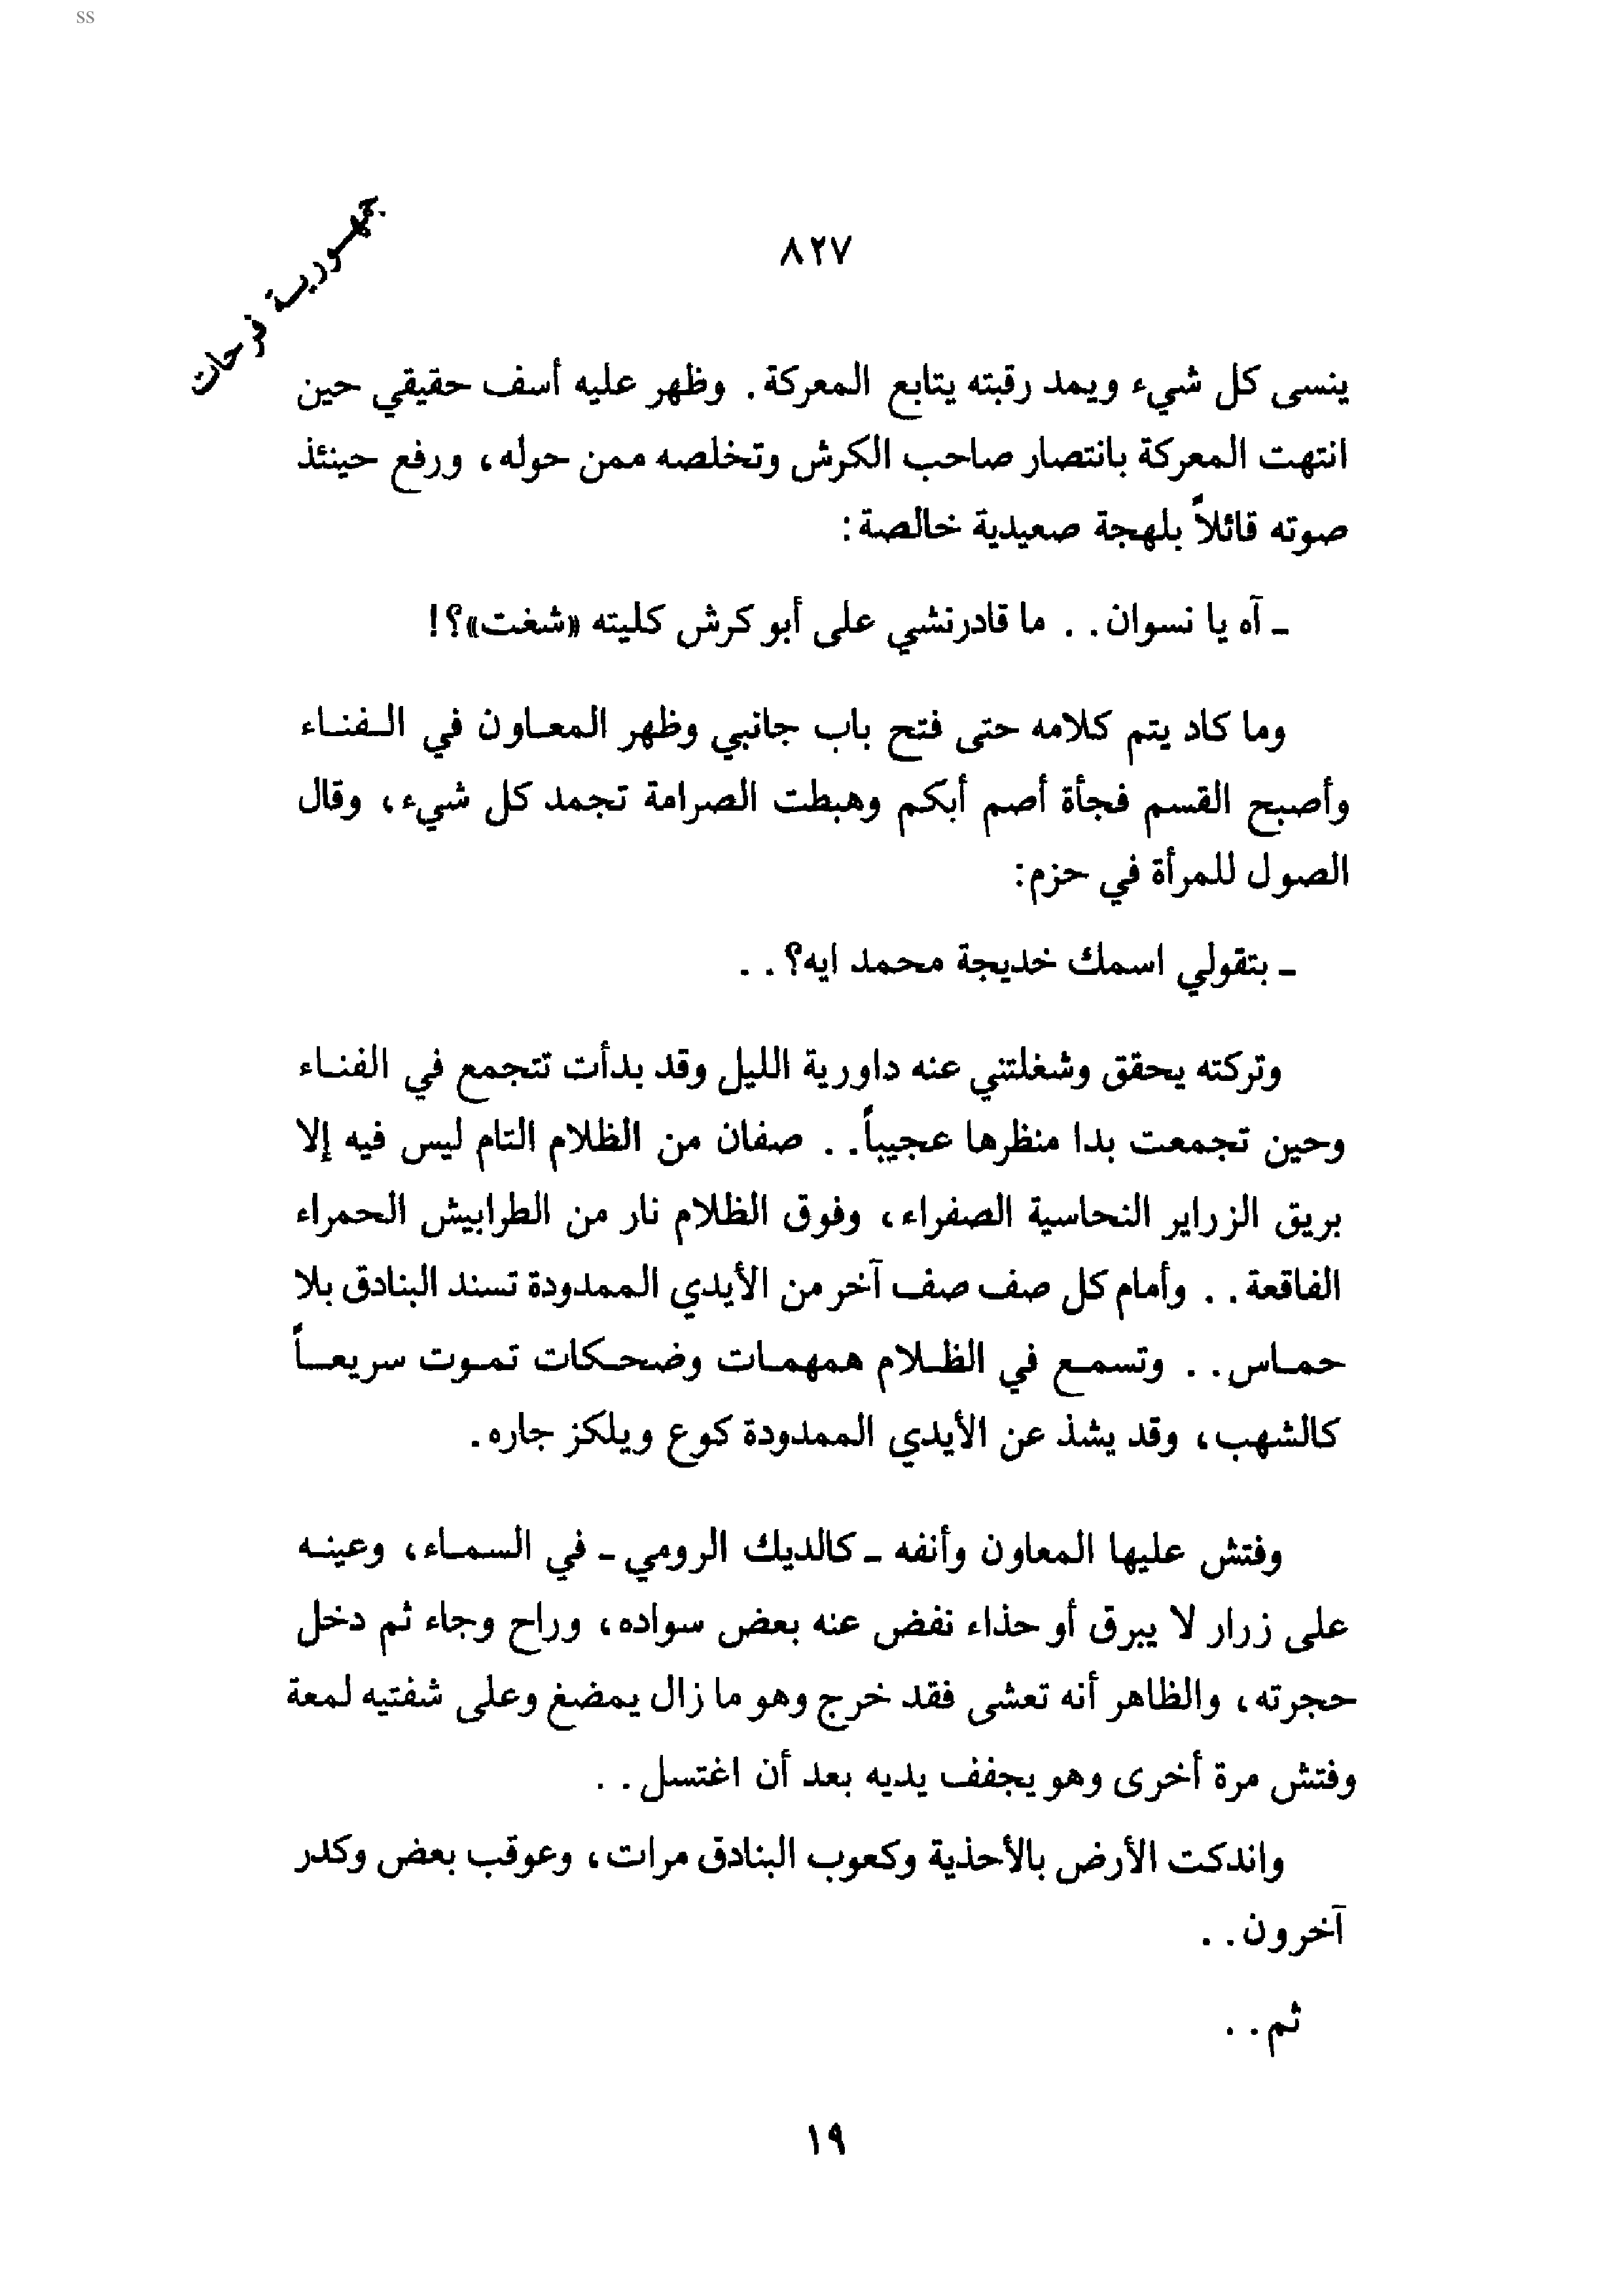 ss
جمهورية فرحات
٨٢٧
ينسى كل شيء ويمد رقبته يتابع المعركة. وظهر عليه أسف حقيقي حين
انتهت المعركة بانتصار صاحب الكرش وتخلصه ممن حوله، ورفع حينئذ
صوته قائلاً بلهجة صعيدية خالصة:
ـ آه يا نسوان.. ما قادرنشي على أبو كرش كليته «شغت»؟!
وما كاد يتم كلامه حتى فتح باب جانبي وظهر المعـاون في الـفنـاء
وأصبح القسم فجأة أصم أبكم وهبطت الصرامة تجمد كل شيء، وقال
الصول للمرأة في حزم:
ـ بتقولي اسمك خديجة محمد ايه؟..
وتركته يحقق وشغلتني عنه داورية الليل وقد بدأت تتجمع في الفنـاء
وحين تجمعت بدا منظرها عجيباً.. صفان من الظلام التام ليس فيه إلا
بريق الزراير النحاسية الصفراء، وفوق الظلام نار من الطرابيش الحمراء
الفاقعة.. وأمام كل صف صف آخر من الأيدي الممدودة تسند البنادق بلا
حمـاس.. وتسمـع في الظـلام همهمـات وضحـكات تمـوت سريعـاً
كالشهب، وقد يشذ عن الأيدي الممدودة كوع ويلكز جاره.
وفتش عليها المعاون وأنفه ـ كالديك الرومي ـ في السمـاء، وعينـه
على زرار لا يبرق أو حذاء نفض عنه بعض سواده، وراح وجاء ثم دخل
حجرته، والظاهر أنه تعشى فقد خرج وهو ما زال يمضغ وعلى شفتيه لمعة
وفتش مرة أخرى وهو يجفف يديه بعد أن اغتسل..
واندكت الأرض بالأحذية وكعوب البنادق مرات، وعوقب بعض وكدر
آخرون..
ثم..
١٩